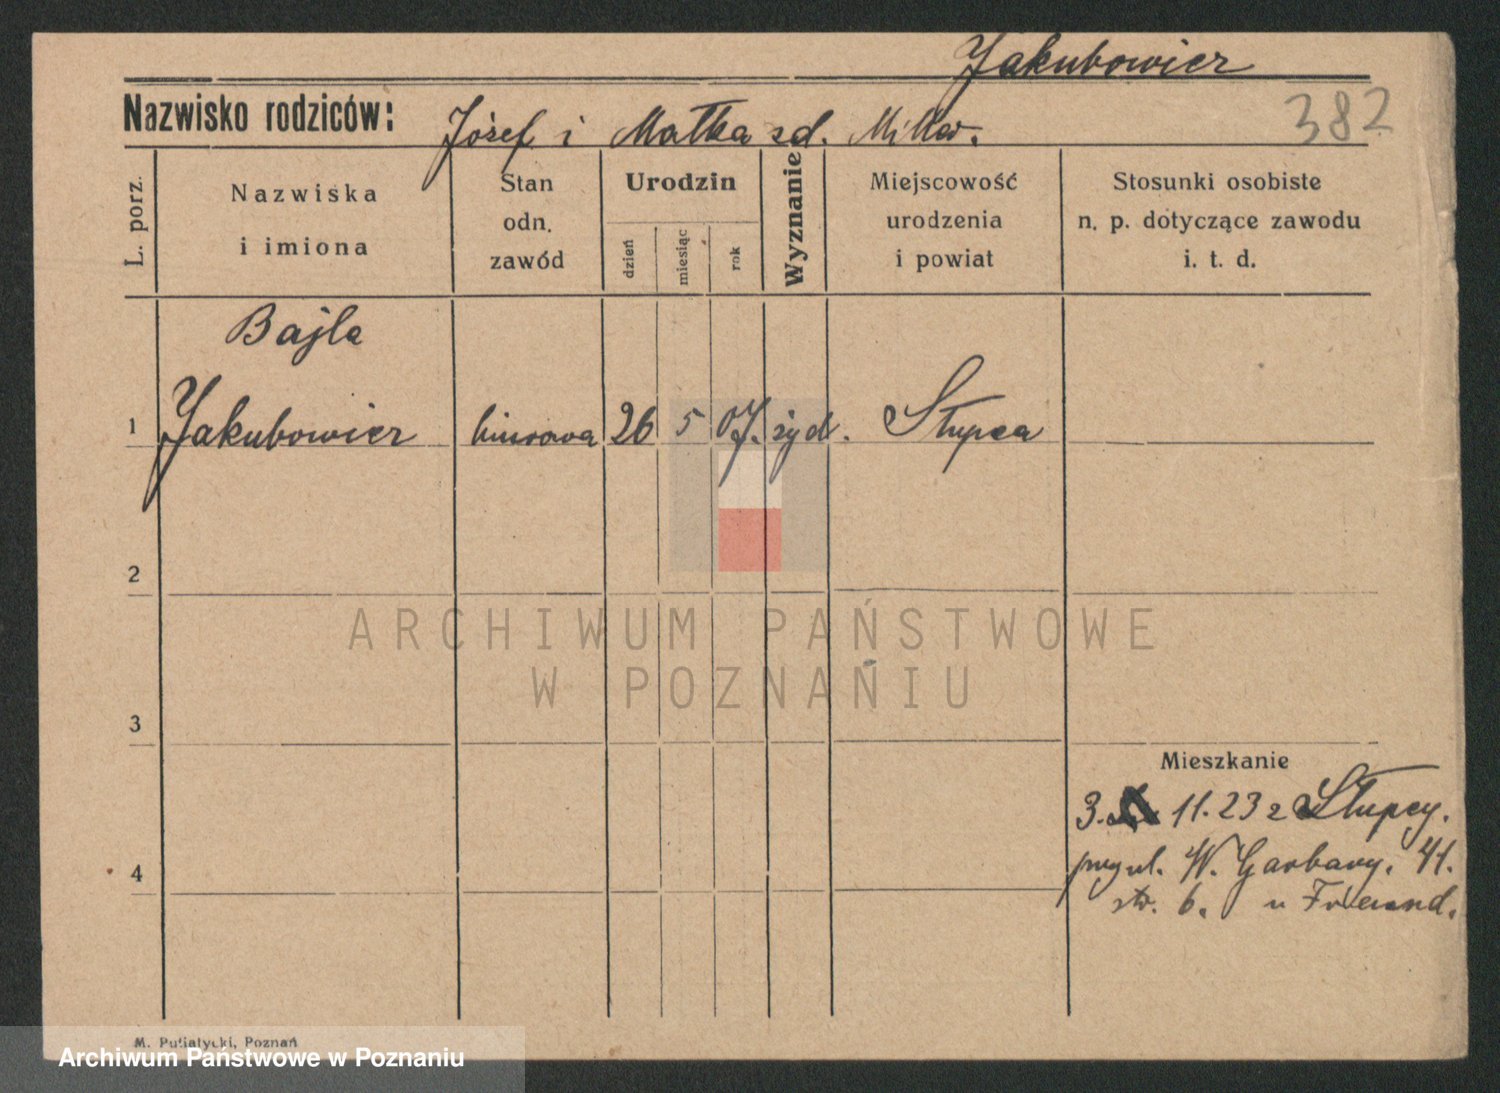 Jakubowicz
Nazwisko rodziców: Józef i Małka zd. 382
L. porz.
Nazwiska i imiona
Stan odn. zawód
Urodzin
dzień miesiąc rok
Wyznanie
Miejscowość urodzenia i powiat
Stosunki osobiste n. p. dotyczące zawodu i. t. d.
Bajla
1 Jakubowicz biurowa 26 5 07. żyd. Słupca
2
ARCHIWUM PAŃSTWOWE
W POZNANIU
3
Mieszkanie
3. 11. 23 z Słupcy.
4 W. Garbary. 41.
6. u Friemand.
M. Putiatycki, Poznań
Archiwum Państwowe w Poznaniu